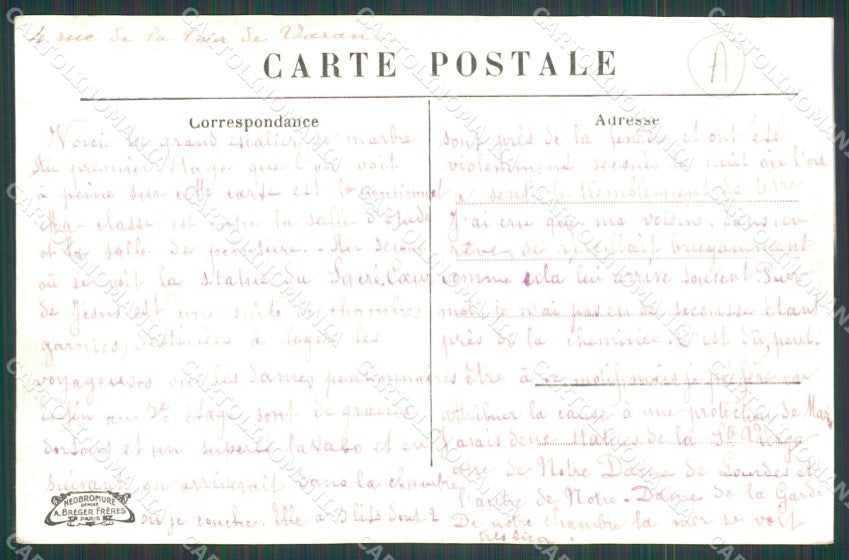 4 rue de la Tour de Varan
CARTE POSTALE
A
Correspondance
Voici le grand escalier de marbre
du premier étage que l'on voit
à peine sur cette carte est le
Ma classe est entre la salle d'étude
et la salle de peinture. - Au
où se voit la statue du Sacré. Cœur
de Jésus est une suite de chambres
garnies, destinées à loger les
voyageuses ou les dames pensionnaires
Enfin au 3e étage sont de grands
dortoirs et un superbe lavabo et en
suivant on arriverait dans la chambre
où je couche. Elle a
NEOBROMURE
DÉPOSÉ
A. BREGER FRÈRES
PARIS
Adresse
sont près de la fenêtre et ont été
violemment la nuit où l'on
a senti le tremblement de terre
J'ai cru que ma voisine. dans un
rêve, se bruyamment
comme cela lui arrive souvent. Pour
moi, je n'ai pas eu de secousse étant
près de la cheminée. C'est dû, peut-
être à ce motif, mais je préfère en
attribuer la cause à une protection de
J'avais deux statues de la Ste Vierge
une de Notre Dame de Lourdes et
l'autre de Notre-Dame de la Garde
De notre chambre la mer se voit
très bien.
CARTOLINOMANIA